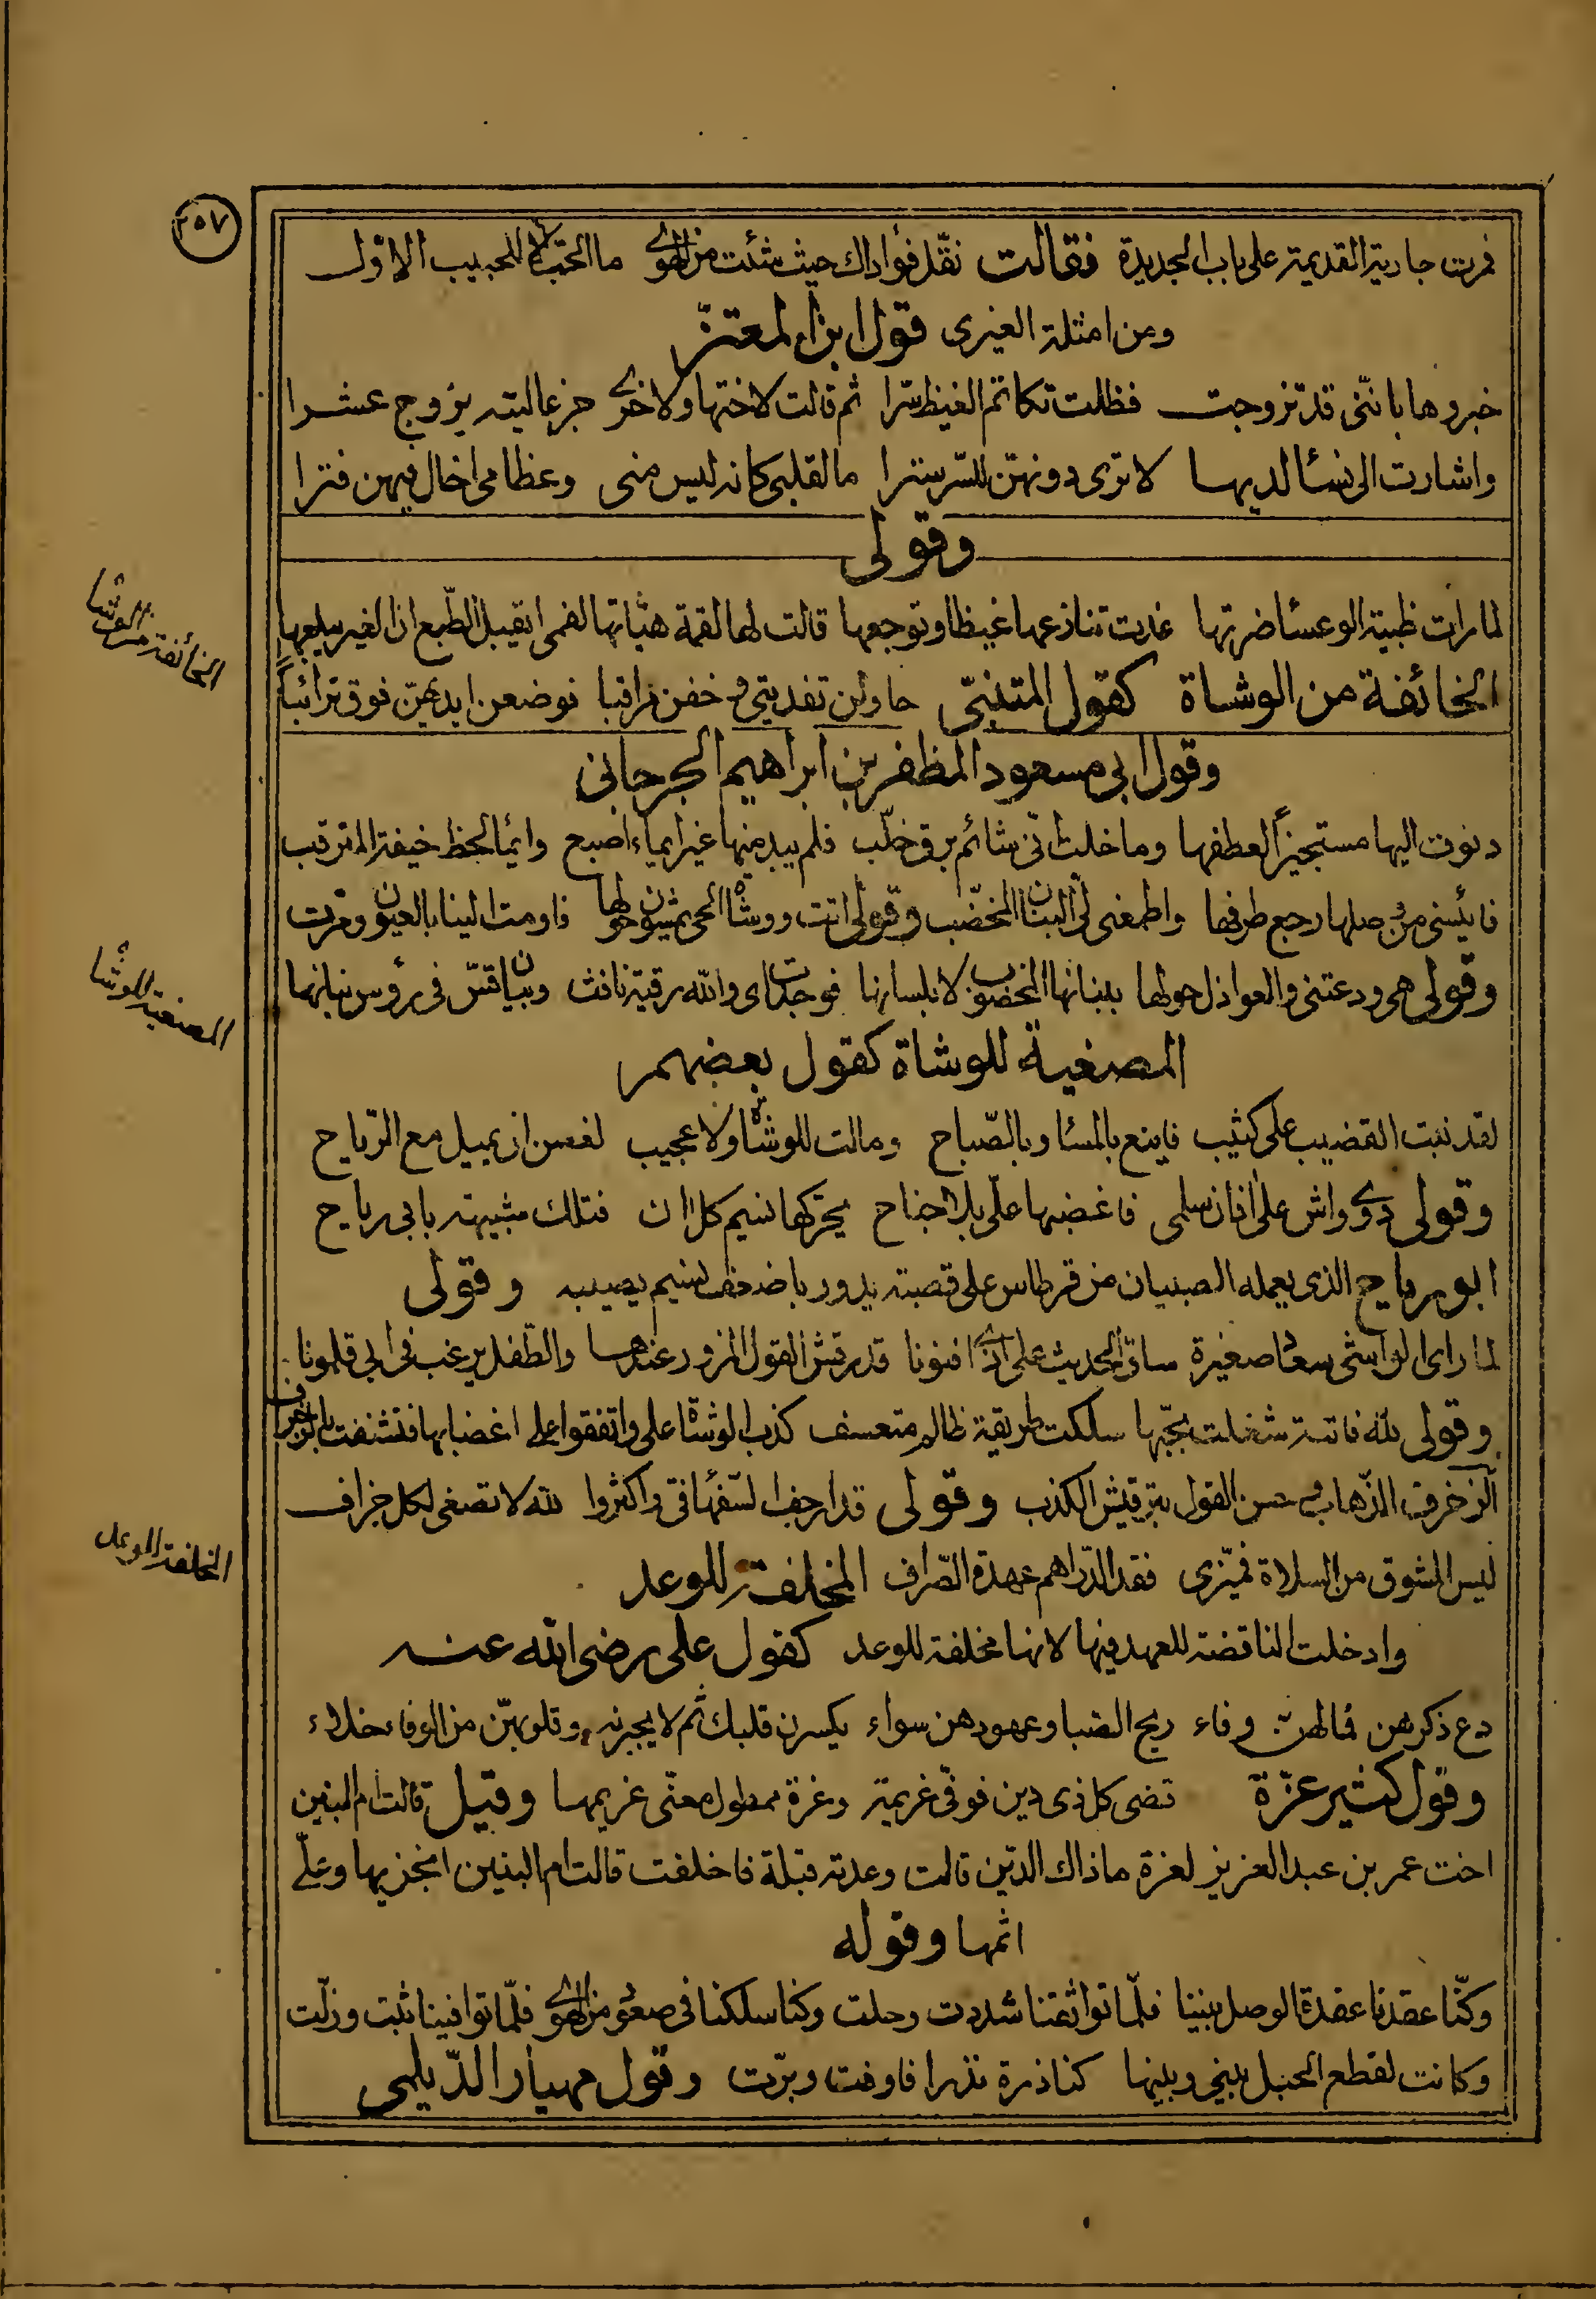 ٢٥٧
فمرت جارية القديمة على باب الجديدة فقالت نقّل فؤادك حيث شئت من الهوى ما الحب إلا للحبيب الاوّل
ومن امثلة الغيرى قول ابن المعتز
خبروها بانّنى قد تزوجت فظلت تكاتم الغيظ سرّا ثم قالت لاختها ولاخرى جزعا ليته تزوج عشرا
واشارت الى نسا لديها لا ترى دونهنّ للسّر سترا ما لقلبى كانه ليس منى وعظامى اخال فيهن فترا
وقولى
لما رات ظبية الوعسا ضرتها غدت تنازعها غيظا وتوجعها قالت لها لقمة هيّأتها لفمى ايقبل الطّبع ان الغير يبلعها
الخائفة من الوشاة
الخائفة من الوشاة كقول المتنبّى حاولن تفديتى وخفن مراقبا فوضعن ايديهنّ فوق ترائبا
وقول ابى مسعود المظفر بن ابراهيم الجرجانى
دنوت اليها مستجيزاً لعطفها وما خلت انّى شائم برق خلّب فلم يبد منها غير ايماء اصبع وايما لحظ خيفة المترقب
فايئسنى من وصلها رجع طرفها واطمعنى لىّ البنان المخضّب وقولى اتت ووشاة الحى يمشون حولها فاومت الينا بالعيون ومرت
وقولى هى ودعتنى والعواذل حولها ببنانها المخضوب لا بلسانها فوجدت اى والله رقية نافث وبيان قسّ فى رؤس بنانها
المصغية للوشاة
المصغية للوشاة كقول بعضهم
لقد نبت القضيب على كثيب فاينع بالمسا وبالصّباح ومالت للوشاة ولا عجيب لغصن ان يميل مع الرّياح
وقولى دوى واش على اذان سلمى فاغضبها علىّ بلا جناح يحرّكها نسيم كل ان فتلك شبيهة بابى رياح
ابو رياح الذى يعمله الصبيان من قرطاس على قصبة يدور باضعف نسيم يصيبه وقولى
لما راى الواشى سعاد صغيرة ساق الحديث على اذاى افنونا قد رقش القول المزور عندها والطّفل يرغب فى ابى قلمونا
وقولى لله فاتنة شغلت بحبّها سلكت طريقة ظالم متعسف كذب الوشاة على واتفقوا على اغضابها فتشنفت بالزخرف
الزخرف الذّهاب وحسن القول بترقيش الكذب وقولى قد ارجف السّفها فىّ واكثروا لله لا تصغى لكل جزاف
ليس المشوق من السلاة فميّزى فقد الدّراهم عهدة الصّراف المخلفة للوعد
المخلفة للوعد
وادخلت الناقضة للعهد فيها لانها مخلفة للوعد كقول على رضى الله عنه
دع ذكرهن فما لهن وفاء ريح الصبا وعهودهن سواء يكسرن قلبك ثم لا يجبرنه وقلوبهنّ من الوفاء خلاء
وقول كثير عزّة قضى كل ذى دين فوفّى غريمة وعزة ممطول معنّى غريمها وقيل قالت ام البنين
اخت عمر بن عبد العزيز لعزة ما ذاك الدّين قالت وعدته قبلة فاخلفت قالت ام البنين انجزيها وعلىّ
اثمها وقوله
وكنّا عقدنا عقدة الوصل بيننا فلمّا تواثقنا شددت وحلت وكنا سلكنا فى صعود من الهوى فلمّا توافينا ثبت وزلّت
وكانت لقطع الحبل بينى وبينها كناذرة نذرا فاوفت وبرّت وقول مهيار الدّيلمى